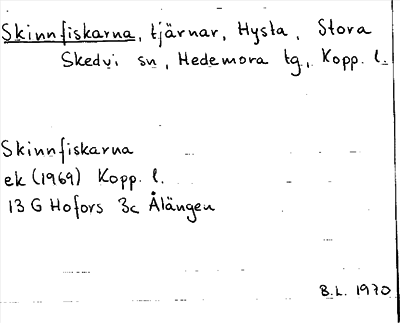 Skinnfiskarna, tjärnar, Hysta, Stora
Skedvi sn, Hedemora tg, Kopp. l.
Skinnfiskarna
ek (1969) Kopp. l.
13 G Hofors 3c Ålängen
B.L. 1970